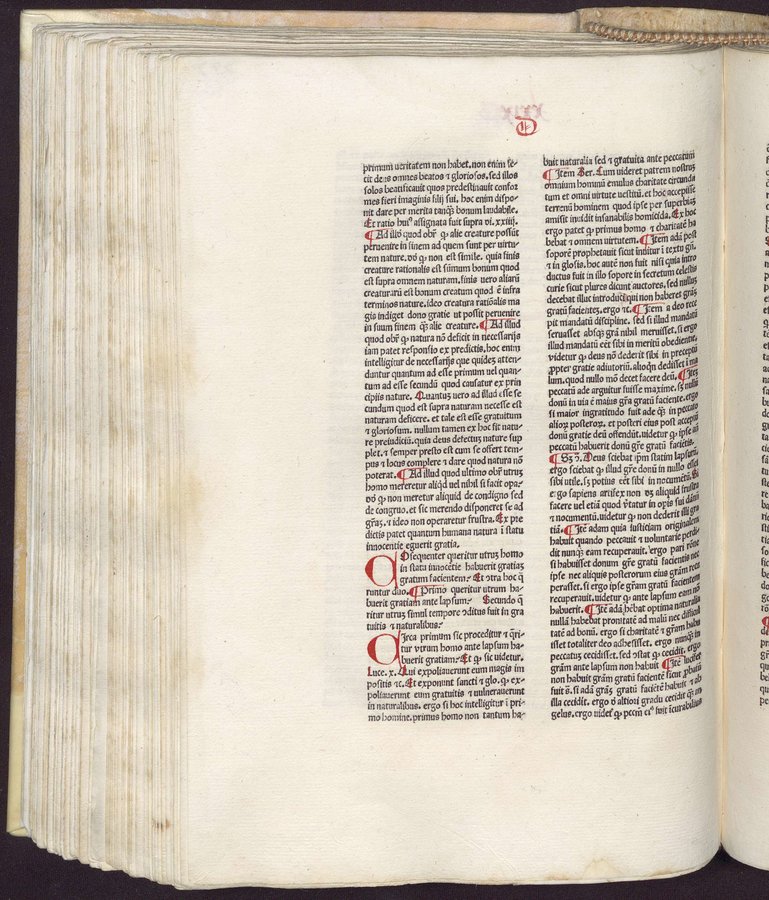 D
primum veritatem non habet. non enim fe-
cit deus omnes beatos ⁊ gloriosos. sed illos
solos beatificauit quos predestinauit confor
mes fieri imaginis filij sui. hoc enim dispo-
nit dare per merita tanqȝ bonum laudabile.
Et ratio huiꝰ assignata fuit supra vi. xxiiij.
¶ Ad illd̓ quod obȝ̄ ꝙ alie creature possūt
peruenire in finem ad quem sunt per virtu-
tem nature. dō̄ ꝙ non est simile. quia finis
creature rationalis est summum bonum quod
est supra omnem naturam. finis vero aliarū
creaturarū est bonum creatum quod ē infra
terminos nature. ideo creatura rationalis ma
gis indiget dono gratie ut possit peruenire
in suum finem qȝ̄ alie creature. ¶ Ad illud
quod obȝ̄ ꝙ natura nō deficit in necessarijs
iam patet responsio ex predictis. hoc enim
intelligitur de necessarijs que quidē atten-
duntur quantum ad esse primum vel quan-
tum ad esse secundū quod causatur ex prin
cipijs nature. Quantuȝ vero ad illud esse se
cundum quod est supra naturam necesse est
naturam deficere. et tale est esse gratuitum
⁊ gloriosum. nullum tamen ex hoc fit natu-
re preiudiciū. quia defectuȝ nature sup
plet. ⁊ semper presto est cum se offert tem-
pus ⁊ locus complere ⁊ dare quod natura nō
poterat. ¶ Ad illud quod ultimo obȝ̄ utruȝ
homo mereretur aliqd̓ vel nihil si facit opa.
dō̄ ꝙ non meretur aliquid de condigno sed
de congruo. et sic merendo disponeret se ad
grām. ⁊ ideo non operaretur frustra. Ex pre
dictis patet quantum humana natura ī statu
innocentie eguerit gratia.
COnsequenter queritur utruȝ homo
in statu innocētie habuerit gratiaȝ
gratum facientem. Et circa hoc q̄
runtur duo. ¶ Primo queritur utrum ha-
buerit gratiam ante lapsum. Secundo q̄
ritur utruȝ simul tempore ↄditus fuit in gra
tuitis ⁊ naturalibus.
CIrca primum sic proceditur ⁊ q̄ri-
tur vtrum homo ante lapsum ha-
buerit gratiam. Et ꝙ sic videtur.
Luce. x. Qui expoliauerunt eum magis im
positis ⁊c. Et exponunt sancti ⁊ glo. ꝙ ex-
poliauerunt eum gratuitis ⁊ vulnerauerunt
in naturalibus. ergo si hoc intelligitur ī pri-
mo homine. primus homo non tantum ha-
buit naturalia sed ⁊ gratuita ante peccatum
¶ Item Ber. Cum uideret patrem nostruȝ
omnium hominū emulus charitate circunda
tum et omni virtute vestitū. et hoc accepisse
terrenū hominem quod ipse per superbiaȝ
amisit inuidit insanabilis homicida. Ex hoc
ergo patet ꝙ primus homo ⁊ charitatē ha
bebat ⁊ omnem virtutem. ¶ Item adā post
soporē prophetauit sicut inuitur ī textu gn̄.
et in glosis. hoc autē non fuit nisi quia intro
ductus fuit in illo sopore in secretum celestis
curie sicut plures dicunt auctores. sed nulluȝ
decebat illuc introduci qui non haberet grāȝ
gratū facientēȝ. ergo ⁊c. ¶ Item a deo rece
pit mandatū discipline. sed si illud mandatū
seruasset absqȝ grā nihil meruisset. si ergo
illud mandatū eēt sibi in meritū obedientie.
videtur ꝙ deus nō dederit sibi in preceptū
ꝓpter gratie adiutoriū. alioqn̄ dedisset ī ma
lum. quod nullo mō decet facere deū. ¶ Iteȝ
peccatū ade arguitur fuisse maxime. sȝ nullū
donū in via ē maius grā gratū faciente. ergo
si maior ingratitudo fuit ade qȝ̄ in peccato
alioꝝ posteroꝝ. et posteri eius post acceptū
donū gratie deū offendūt. uidetur ꝙ ipse añ
peccatū habuerit donū grē gratū facientis.
¶ Sȝ ꝯ̄. Deus sciebat ipm statim lapsurū.
ergo sciebat ꝙ illud grē donū in nullo esset
sibi utile. sȝ potius eēt sibi in nocumētū. Si
ergo sapiens artifex non dȝ aliquid frustra
facere uel etiā quod v̓tatur in opis sui dānū
⁊ nocumentū. uidetur ꝙ non dederit illi grā
tiā. ¶ Itē adam quia iustitiam originalem
habuit quando peccauit ⁊ voluntarie perdi-
dit nunqȝ eam recuperauit. ergo pari rōne
si habuisset donum grē gratū facientis nec
ipse nec aliquis posterorum eius grām recu
perasset. si ergo ipse grām gratū facientem
recuperauit. uidetur ꝙ ante lapsum eam nō
habuerit. ¶ Itē adā hēbat optima naturalia
nullā habebat pronitatē ad malū nec difficul
tatē ad bonū. ergo si charitatē ⁊ grām habu
isset totaliter deo adhesisset. ergo nunqȝ in
peccatuȝ cecidisset. sed ↄstat ꝙ cecidit. ergo
grām ante lapsum non habuit ¶ Itē lucifer
non habuit grām gratū faciētē sicut ꝓbatū
fuit s̄. si adā grāȝ gratū faciētē habuit ⁊ ab
illa cecidit. ergo d̓ altiori gradu cecidit qȝ̄ an
gelus. ergo uidet̄ ꝙ pccm̄ eiꝰ fuit īcurabilius